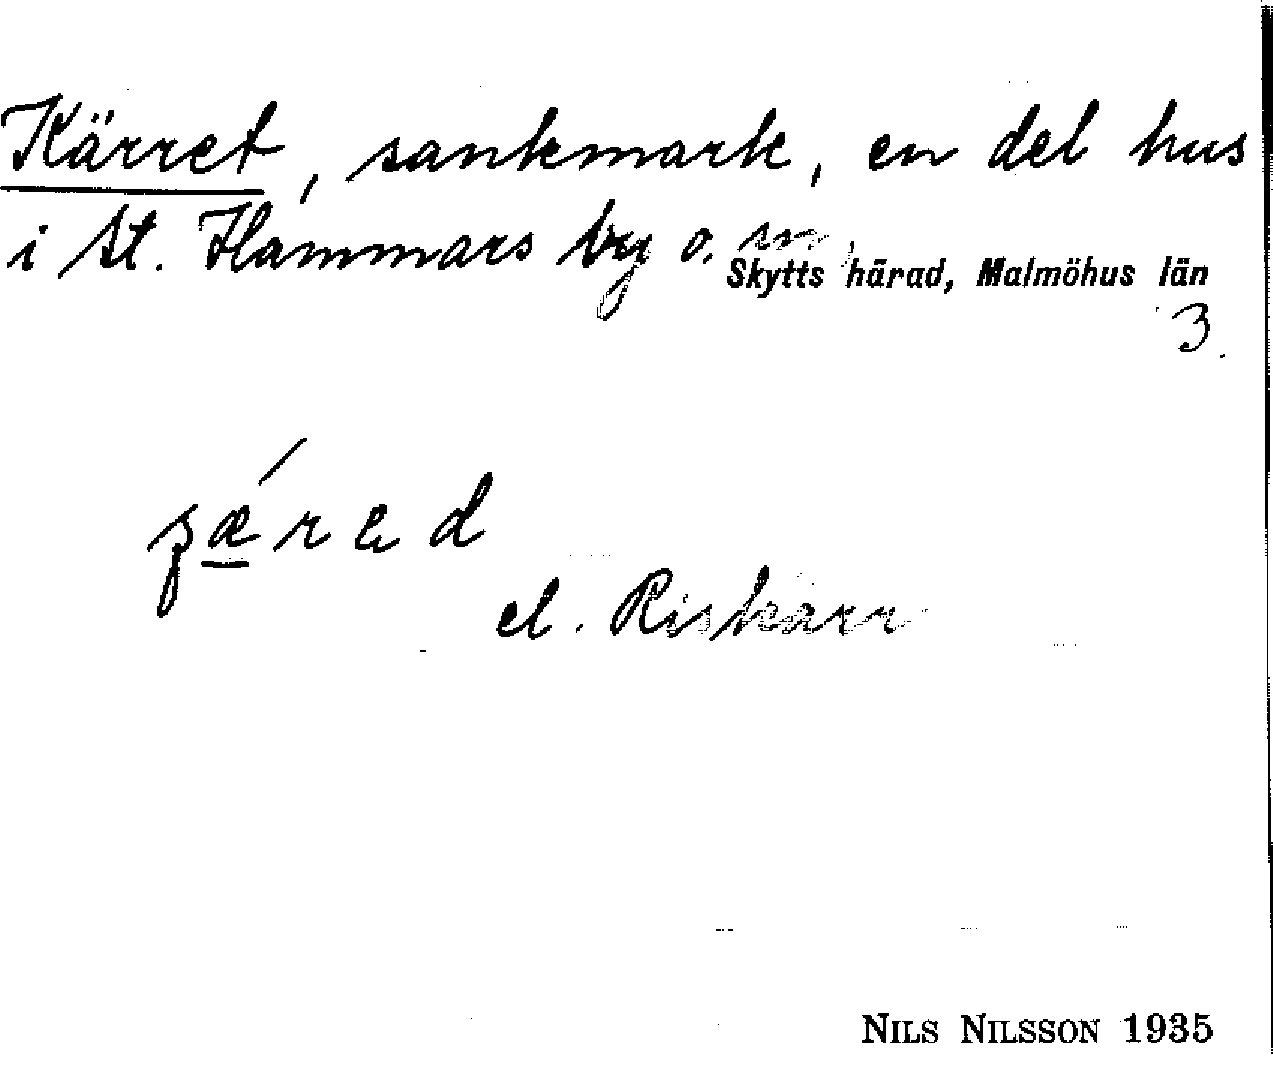 Kärret, sankmark, en del hus
i St. Hammars by o. sn
Skytts härad, Malmöhus län
3.
el. Riskärr
NILS NILSSON 1935